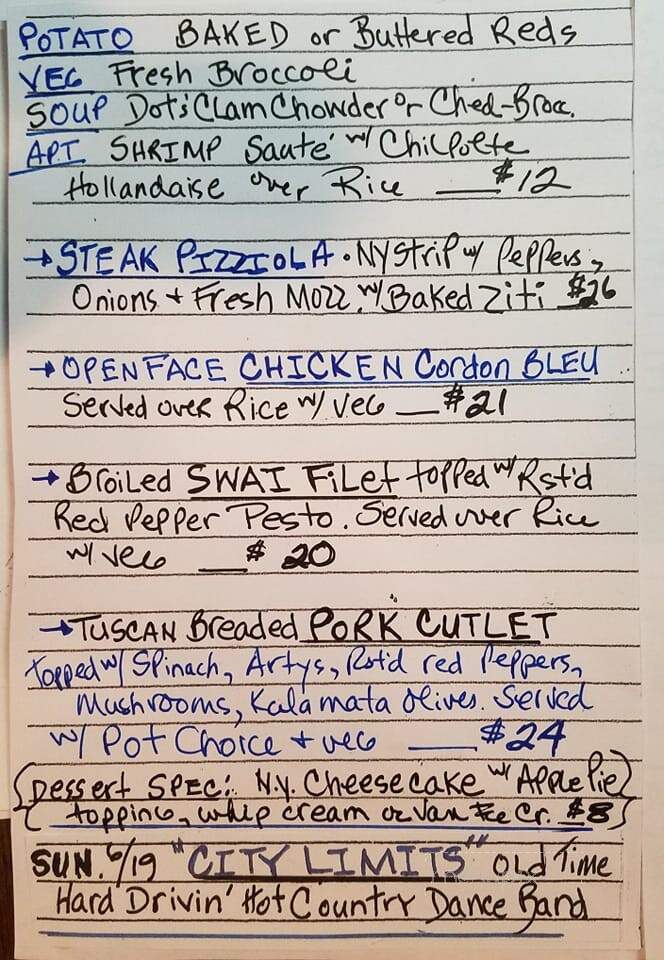 POTATO BAKED or Buttered Reds
VEG Fresh Broccoli
SOUP Dot's Clam Chowder or Ched-Broc.
APT. SHRIMP Sauté w/ Chilpolte
Hollandaise over Rice __ $12
→ STEAK PIZZIOLA • NY Strip w/ Peppers,
Onions + Fresh Mozz. w/ Baked Ziti $26
→ OPEN FACE CHICKEN Cordon BLEU
Served over Rice w/ veg __ $21
→ Broiled SWAI Filet topped w/ Rst'd
Red Pepper Pesto. Served over Rice
w/ veg __ $20
→ TUSCAN Breaded PORK CUTLET
topped w/ Spinach, Artys, Rst'd red Peppers,
Mushrooms, Kalamata olives. Served
w/ Pot Choice + veg __ $24
Dessert SPEC: N.Y. Cheesecake w/ Apple Pie
topping, whip cream or Van Ice Cr. $8
SUN. 6/19 "CITY LIMITS" Old Time
Hard Drivin' Hot Country Dance Band